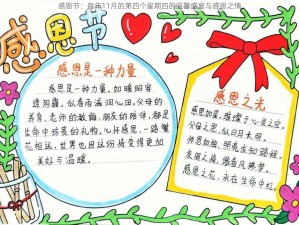 感恩节：每年11月的第四个星期四的温馨盛宴与感恩之情
感恩节
感恩是一种力量
感恩是一种力量，如暖阳穿
透阴霾，似春雨滋润心田。父母的
养育，老师的教诲，朋友的陪伴，都是
生命中珍贵的礼物。心怀感恩，一路繁
花相送，世界也因这份情变得更加
美好与温暖。
感恩之光
感恩如星，挂于心灵之空，
父母之恩，似日月未明。
师恩如烛，照亮求知路程，
友谊之谊，
感恩之花，永在生命中红。